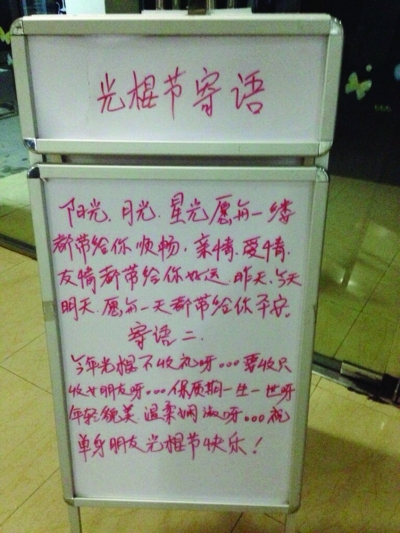 光棍节寄语
阳光、月光、星光愿每一缕
都带给你顺畅,亲情、爱情、
友情都带给你好运,昨天、今天
明天、愿每一天都带给你平安。
寄语二
今年光棍不收礼呀...要收只
收女朋友呀...保质期一生一世呀
年轻貌美温柔娴淑呀...祝
单身朋友光棍节快乐!